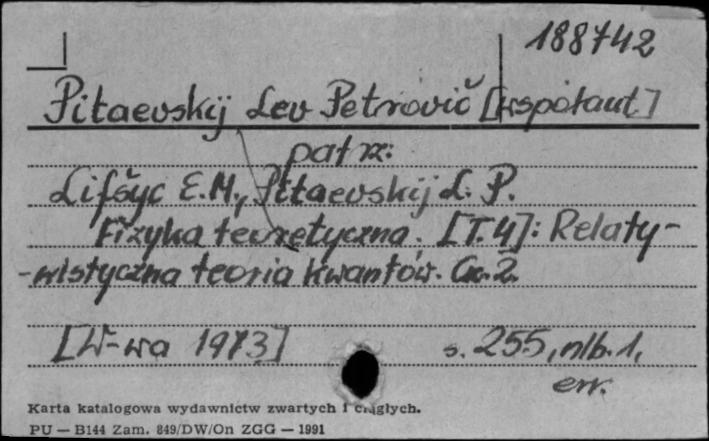 188742
Pitaevskij Lev Petrovič [współaut]
patrz:
Lifšyc E.M., Pitaevskij L. P.
Fizyka teoretyczna. [T.4]: Relaty-
-wistyczna teoria kwantów. Cz. 2.
[W-wa 1973] s. 255, nlb. 1,
err.
Karta katalogowa wydawnictw zwartych i ciągłych.
PU — B144 Zam. 849/DW/On ZGG — 1991